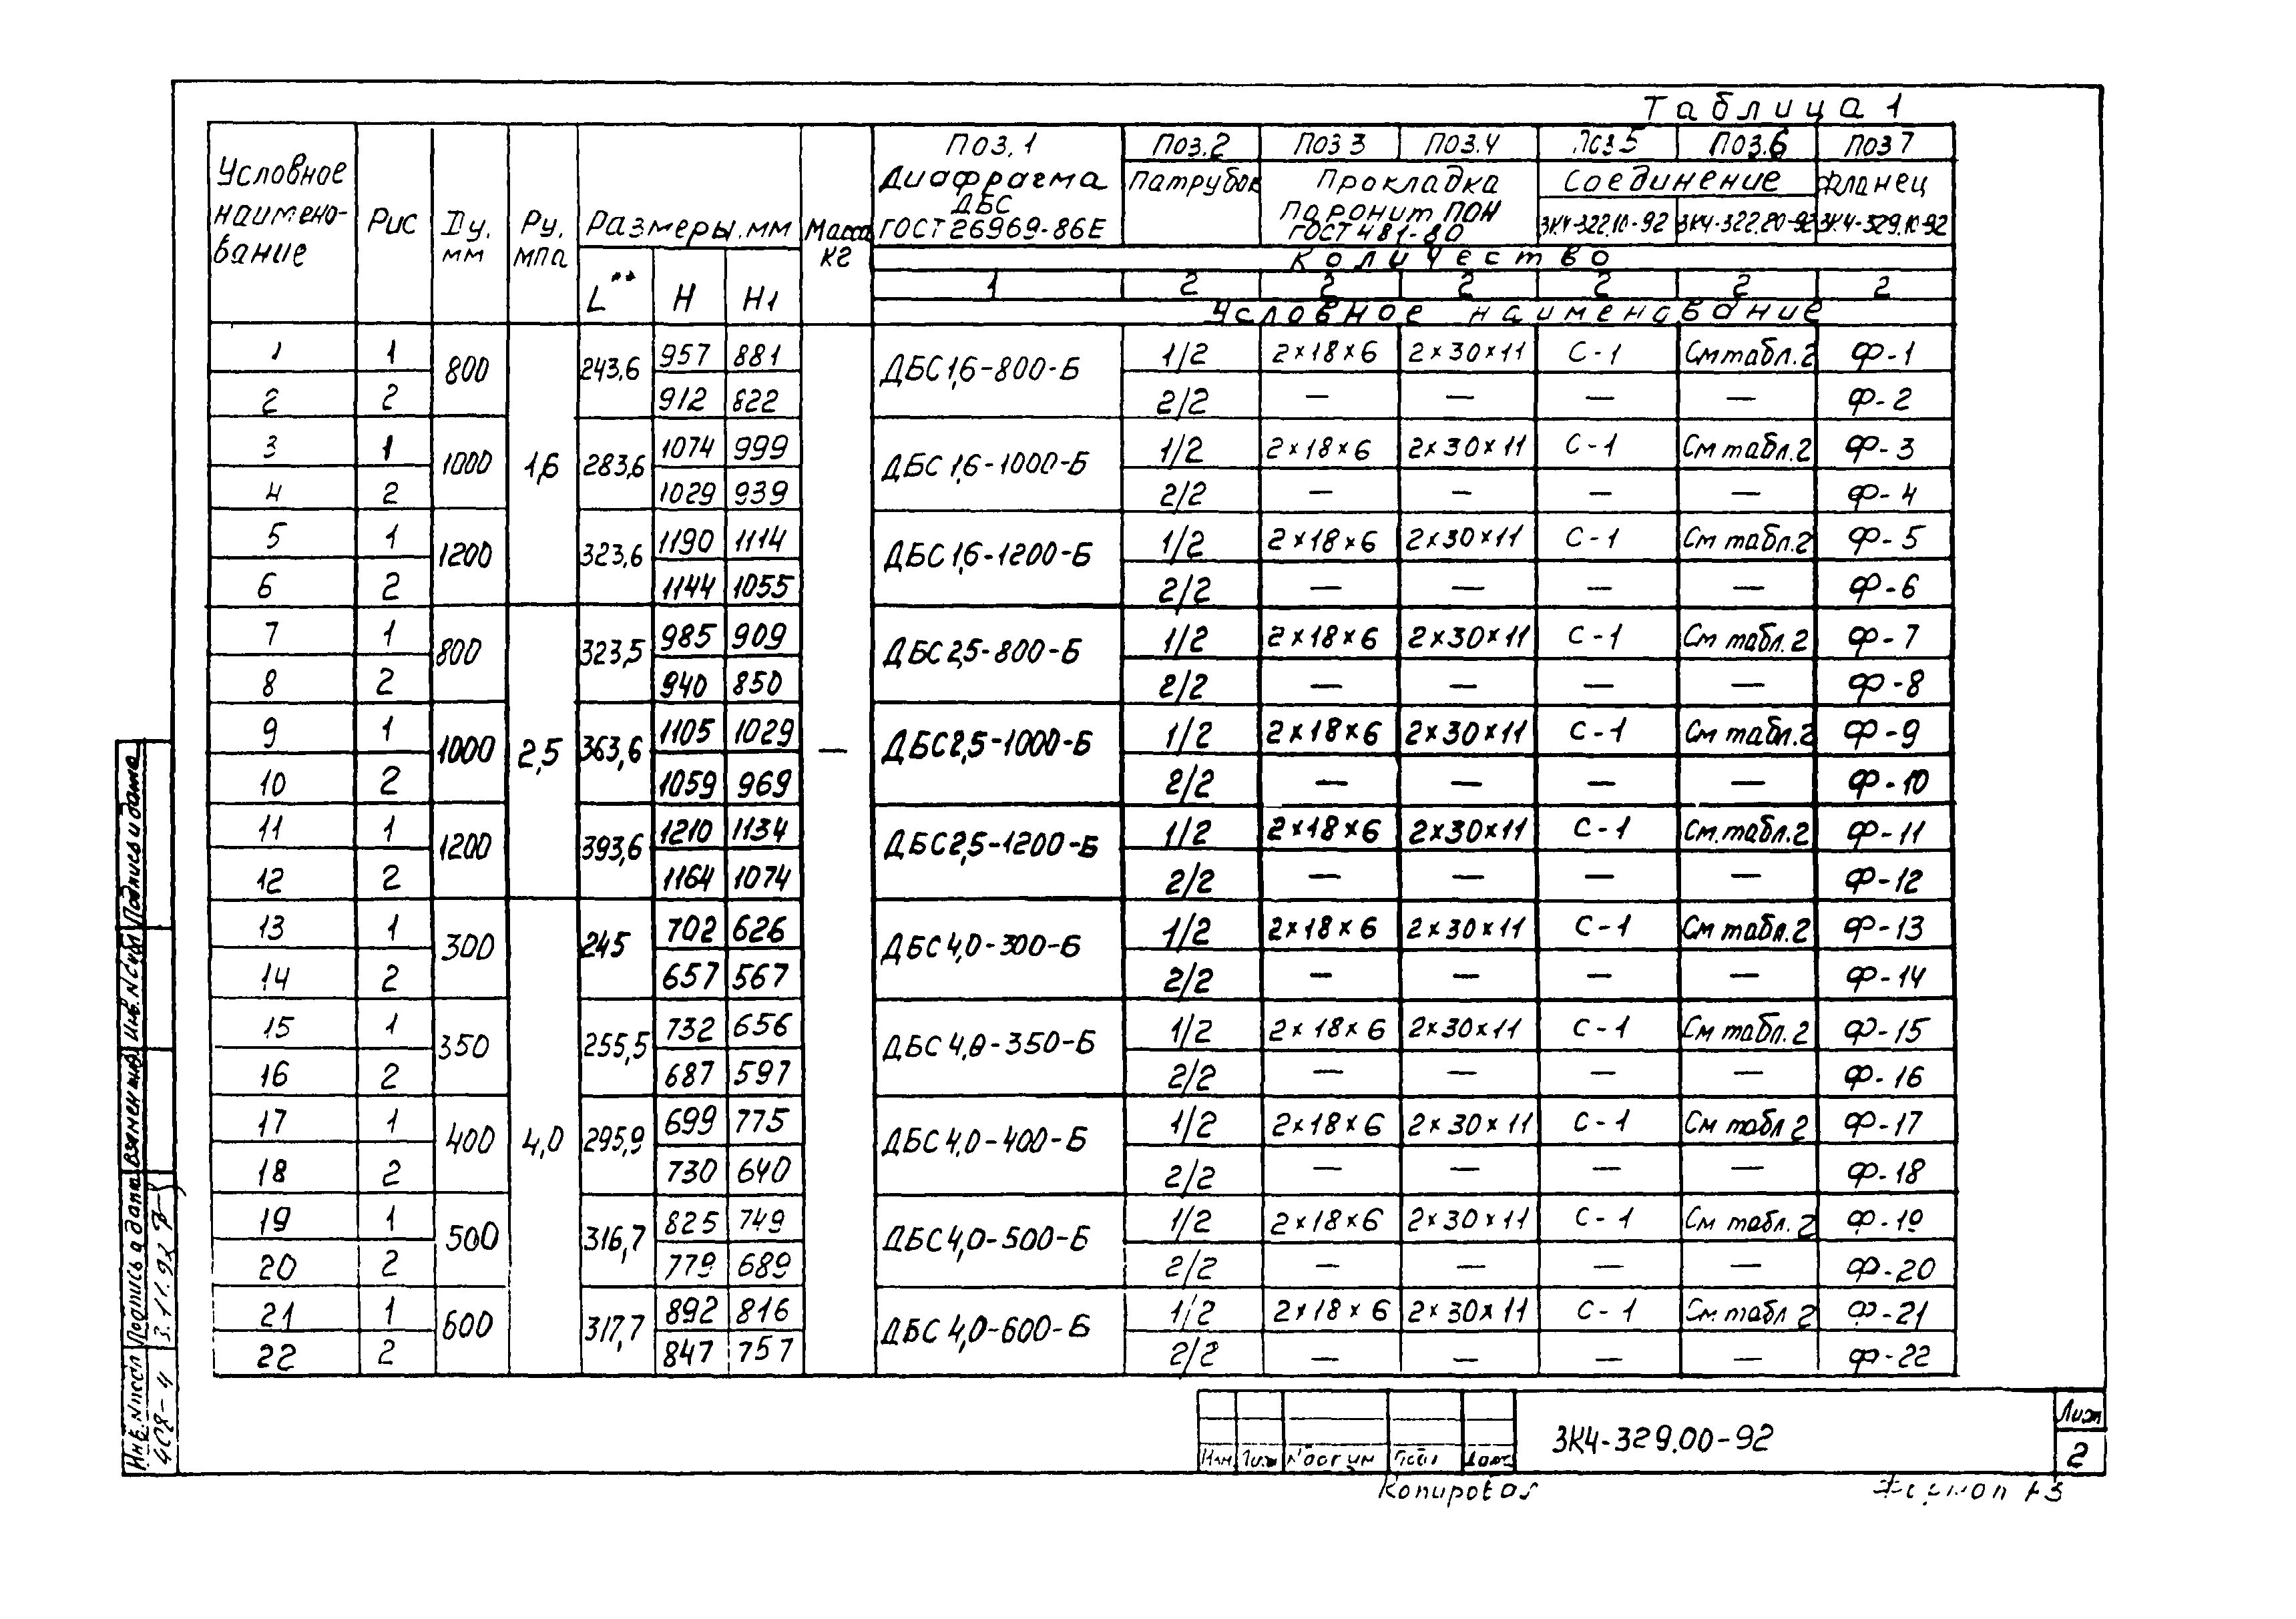 Таблица 1
Условное наимено- вание Рис Dу, мм Ру, мпа Размеры, мм Масса кг Поз. 1 Поз. 2 Поз 3 Поз. 4 Поз 5 Поз. 6 Поз 7
Диафрагма ДБС ГОСТ 26969-86Е Патрубок Прокладка Паронит ПОН ГОСТ 481-80 Соединение Фланец
ЗК4-322.10-92 ЗК4-322.20-92 ЗК4-329.10-92
L** H H1
Количество
1 2 2 2 2 2 2
Условное наименование
1 1 800 1,6 243,6 957 881 ДБС 1,6-800-Б 1/2 2×18×6 2×30×11 С-1 См табл. 2 Ф-1
2 2 912 822 2/2 — — — — Ф-2
3 1 1000 283,6 1074 999 ДБС 1,6-1000-Б 1/2 2×18×6 2×30×11 С-1 См табл. 2 Ф-3
4 2 1029 939 2/2 — — — — Ф-4
5 1 1200 323,6 1190 1114 ДБС 1,6-1200-Б 1/2 2×18×6 2×30×11 С-1 См табл. 2 Ф-5
6 2 1144 1055 2/2 — — — — Ф-6
7 1 800 2,5 323,5 985 909 ДБС 2,5-800-Б 1/2 2×18×6 2×30×11 С-1 См табл. 2 Ф-7
8 2 940 850 2/2 — — — — Ф-8
9 1 1000 363,6 1105 1029 — ДБС 2,5-1000-Б 1/2 2×18×6 2×30×11 С-1 См табл. 2 Ф-9
10 2 1059 969 2/2 — — — — Ф-10
11 1 1200 393,6 1210 1134 ДБС 2,5-1200-Б 1/2 2×18×6 2×30×11 С-1 См. табл. 2 Ф-11
12 2 1164 1074 2/2 — — — — Ф-12
13 1 300 4,0 245 702 626 ДБС 4,0-300-Б 1/2 2×18×6 2×30×11 С-1 См табл. 2 Ф-13
14 2 657 567 2/2 — — — — Ф-14
15 1 350 255,5 732 656 ДБС 4,0-350-Б 1/2 2×18×6 2×30×11 С-1 См табл. 2 Ф-15
16 2 687 597 2/2 — — — — Ф-16
17 1 400 295,9 699 775 ДБС 4,0-400-Б 1/2 2×18×6 2×30×11 С-1 См табл 2 Ф-17
18 2 730 640 2/2 — — — — Ф-18
19 1 500 316,7 825 749 ДБС 4,0-500-Б 1/2 2×18×6 2×30×11 С-1 См табл. 2 Ф-19
20 2 779 689 2/2 — — — — Ф-20
21 1 600 317,7 892 816 ДБС 4,0-600-Б 1/2 2×18×6 2×30×11 С-1 См. табл 2 Ф-21
22 2 847 757 2/2 — — — — Ф-22
Подпись и дата
Инв. N
Взамен инв.
Подпись и дата
3.11.92
Инв. N подл
408-4
ЗК4-329.00-92
Лист
2
Копировал
Формат А3